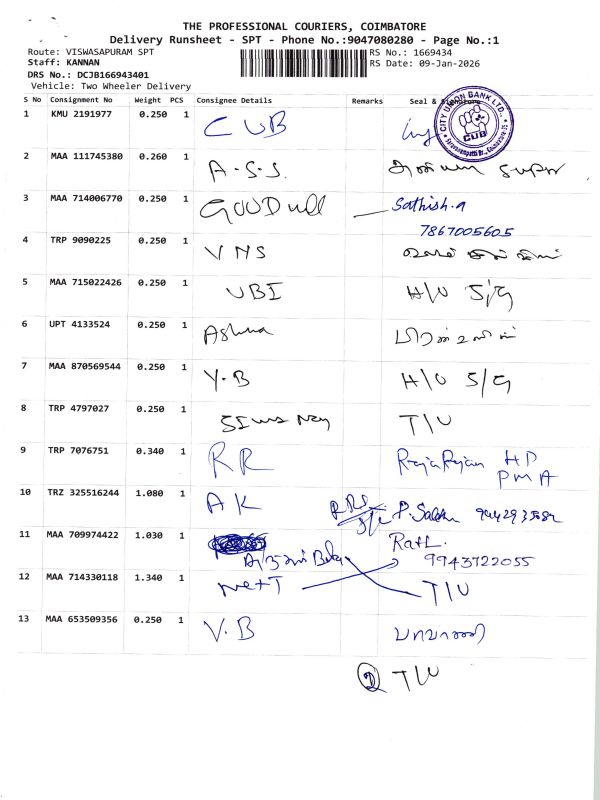 THE PROFESSIONAL COURIERS, COIMBATORE
Delivery Runsheet - SPT - Phone No.:9047080280 - Page No.:1
Route: VISWASAPURAM SPT
RS No.: 1669434
Staff: KANNAN
RS Date: 09-Jan-2026
DRS No.: DCJB166943401
Vehicle: Two Wheeler Delivery
S No Consignment No Weight PCS Consignee Details Remarks Seal &
CITY UNION BANK LTD.,
CUB
1 KMU 2191977 0.250 1 CUB
2 MAA 111745380 0.260 1 A.S.S.
3 MAA 714006770 0.250 1 Sathish.a
7867005605
4 TRP 9090225 0.250 1 VNS
5 MAA 715022426 0.250 1 UBI H/O S/G
6 UPT 4133524 0.250 1
7 MAA 870569544 0.250 1 Y.B H/O S/G
8 TRP 4797027 0.250 1 T/U
9 TRP 7076751 0.340 1 RR RajaRajan HD
PMA
10 TRZ 325516244 1.080 1 AK
11 MAA 709974422 1.030 1
9943722055
12 MAA 714330118 1.340 1 T/U
13 MAA 653509356 0.250 1 V.B
2 T/U